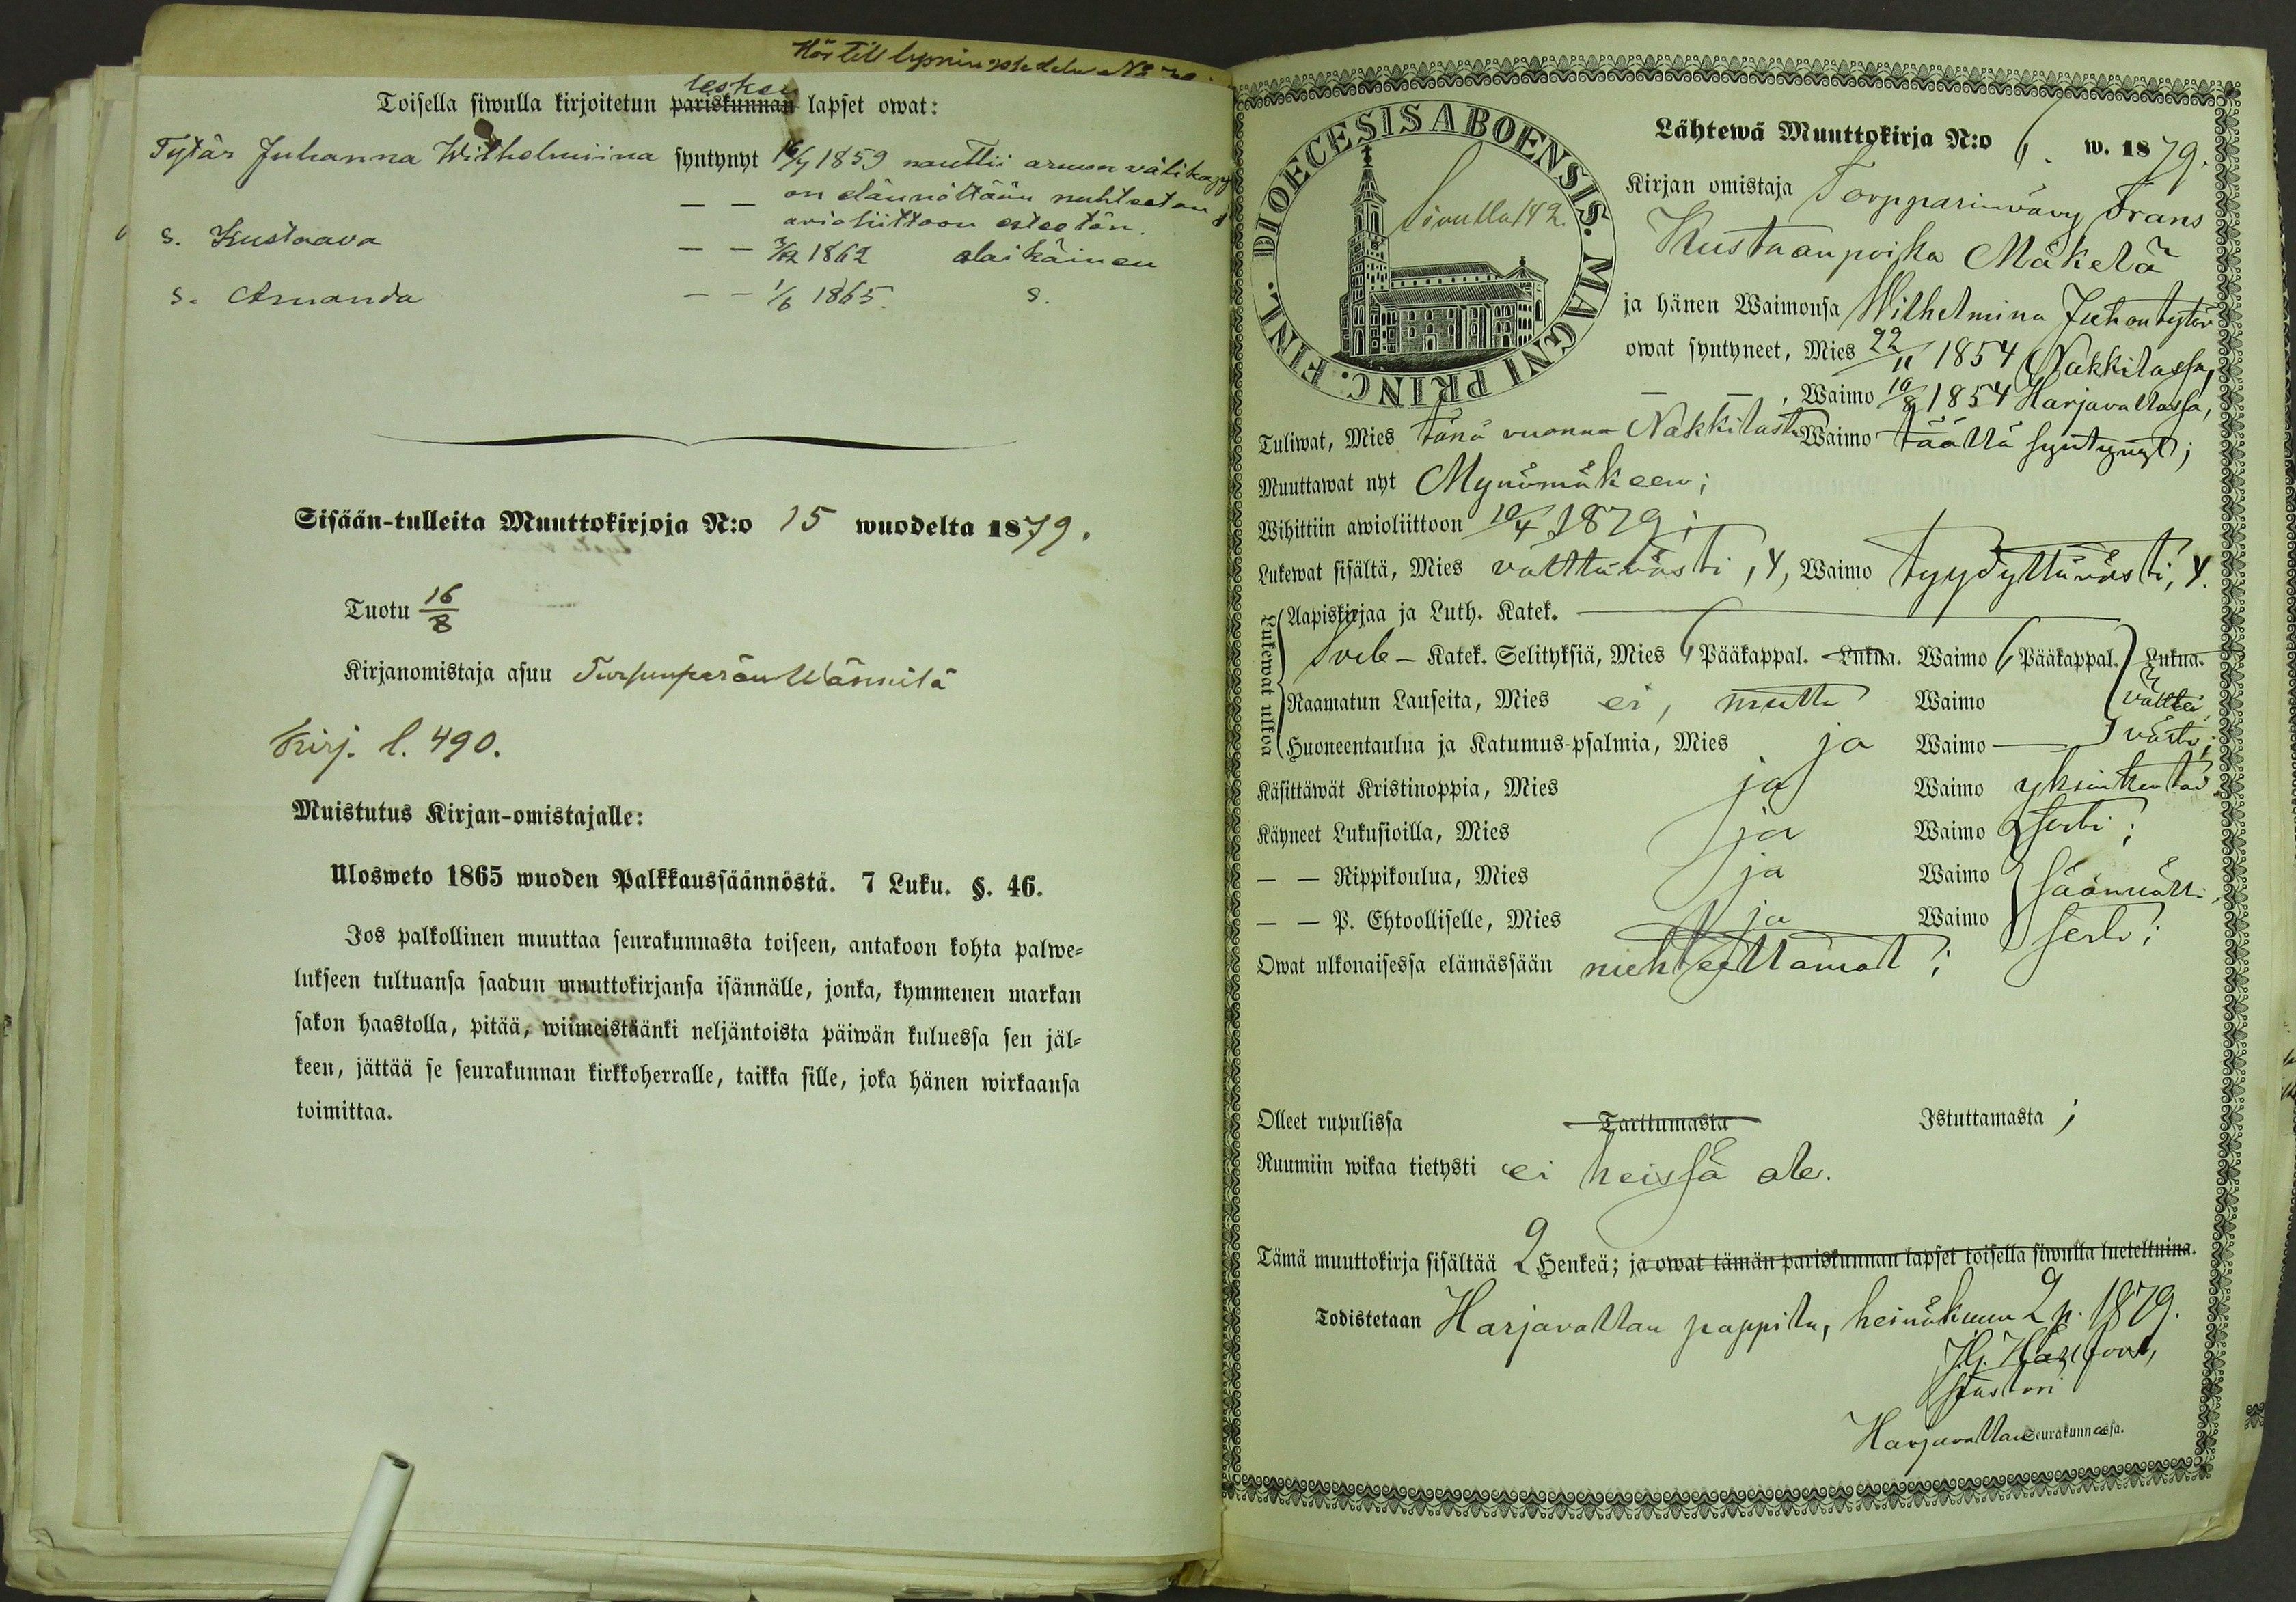 Hör till lysningssedeln No 20.
lesken
Toisella siwulla kirjoitetun pariskunnan lapset owat:
Tytär Juhanna Wilhelmiina syntynyt 16/4 1859 nauttii armon välikap
— — on elännöltään nuhteeton &
avioliittoon esteetön.
s. Kustaava — — 3/12 1862 alaikäinen
s. Amanda — — 1/6 1865. s.
Sisään-tulleita Muuttokirjoja N:o 15 wuodelta 1879.
Tuotu 16/8
Kirjanomistaja asuu Tursunperän Männilä
Kirj. l. 490.
Muistutus Kirjan-omistajalle:
Ulosweto 1865 wuoden Palkkaussäännöstä. 7 Luku. §. 46.
Jos palkollinen muuttaa seurakunnasta toiseen, antakoon kohta palwe-
lukseen tultuansa saadun muuttokirjansa isännälle, jonka, kymmenen markan
sakon haastolla, pitää, wiimeistäänki neljäntoista päiwän kuluessa sen jäl-
keen, jättää se seurakunnan kirkkoherralle, taikka sille, joka hänen wirkaansa
toimittaa.
DIOECESIS ABOENSIS. MAGNI PRINC. FINL.
Sivulla 142.
Lähtewä Muuttokirja N:o w. 1879.
Kirjan omistaja Torpparin vävy Frans
Kustaanpoika Mäkelä
ja hänen Waimonsa Wilhelmina Juhontytär
owat syntyneet, Mies 22/11 1854 Nakkilassa,
— — , Waimo 10/8 1854 Harjavallassa,
Tuliwat, Mies tänä vuonna Nakkilasta Waimo täällä syntynyt;
Muuttawat nyt Mynämäkeen;
Wihittiin awioliittoon 10/4 1879;
Lukewat sisältä, Mies välttävästi, 4, Waimo tyydyttävästi, 4.
Lukewat ulkoa
Aapiskirjaa ja Luth. Katek.
Sveb- Katek. Selityksiä, Mies 6 Pääkappal. Lukua. Waimo 6 Pääkappal. Lukua.
Raamatun Lauseita, Mies ei, mutta Waimo välttä
Huoneentaulua ja Katumus-psalmia, Mies ja Waimo — västi;
Käsittäwät Kristinoppia, Mies ja Waimo yksinkertai
Käyneet Lukusioilla, Mies ja Waimo sesti;
— — Rippikoulua, Mies ja Waimo säännölli
— — P. Ehtoolliselle, Mies ja Waimo sesti;
Owat ulkonaisessa elämässään nuhteettomat;
Olleet rupulissa Tarttumasta Istuttamasta;
Ruumiin wikaa tietysti ei heissä ole.
Tämä muuttokirja sisältää 2 Henkeä; ja owat tämän pariskunnan lapset toisella siwulla lueteltuina.
Todistetaan Harjavallan pappila, heinäkuun 2 p. 1879.
pastori
Harjavallan Seurakunnassa.